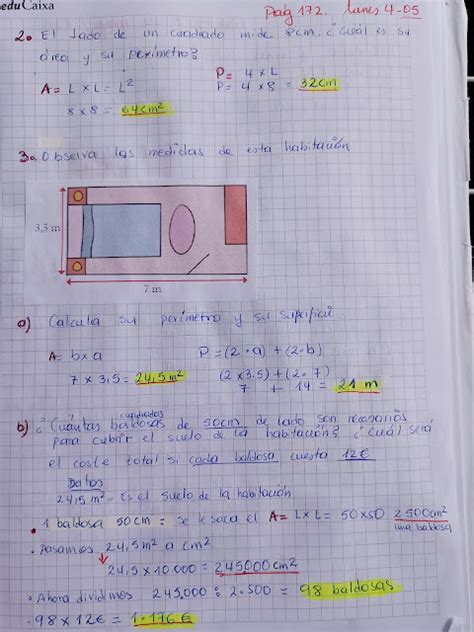 eduCaixa
Pág 172. lunes 4-05
2. El lado de un cuadrado mide 8cm. ¿Cuál es su
área y su perímetro?
A = L x L = L²
8 x 8 = 64cm²
P = 4 x L
P = 4 x 8 = 32cm
3. Observa las medidas de esta habitación
3,5 m
7 m
a) Calcula su perímetro y su superficie
A = b x a
7 x 3,5 = 24,5 m²
P = (2 · a) + (2 · b)
(2 x 3.5) + (2 . 7)
7 + 14 = 21 m
cuadradas
b) ¿Cuántas baldosas de 50cm de lado son necesarias
para cubrir el suelo de la habitación? ¿Cuál será
el coste total si cada baldosa cuesta 12€
Datos
24,5 m² = Es el suelo de la habitación
• 1 baldosa 50cm = se le saca el A = L x L = 50 x 50 2500cm²
una baldosa
• Pasamos 24,5m² a cm²
24,5 x 10.000 = 245000 cm²
• Ahora dividimos 245,000 : 2.500 = 98 baldosas
• 98 x 12€ = 1.176 €